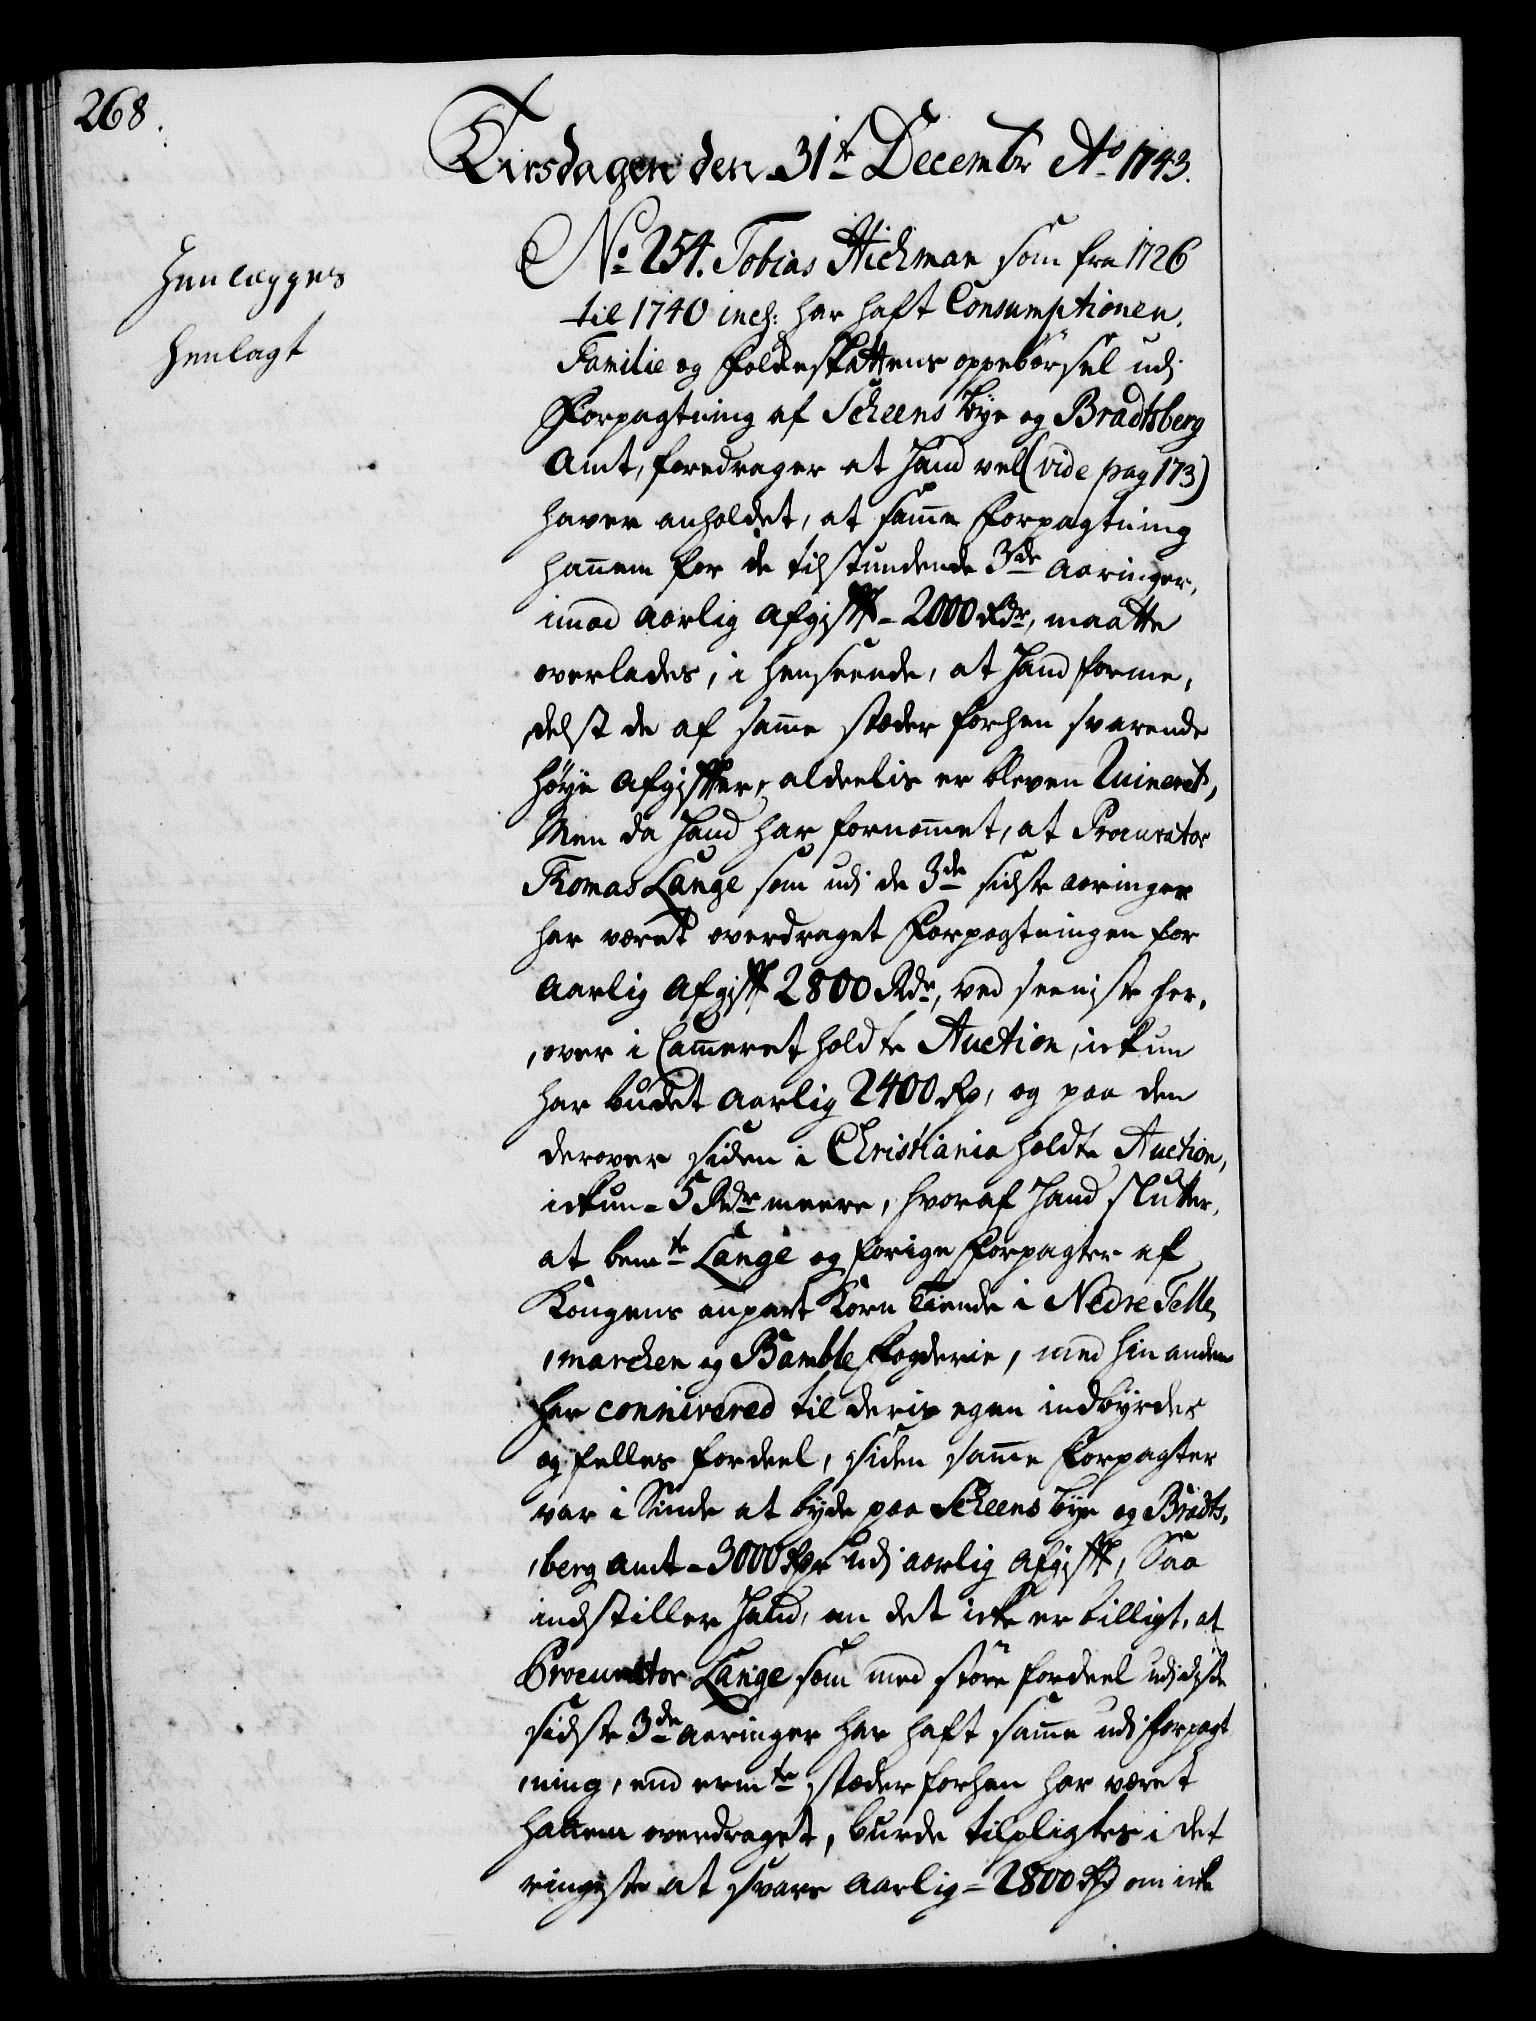 268.
Tirsdagen den 31te Decembr Ao 1743.
Henlægges
Henlagt
No 254. Tobias Hichman som fra 1726
til 1740 incl: har haft Consumptionen,
Familie og Folkeskattens oppebörsel udj
Forpagtning af Scheens Bye og Bradtsberg
Amt, foredrager at Hand vel (vide pag 173)
haver anholdet, at samme Forpagtning
hannem for de tilstundende 3de Aaringer,
imod Aarlig Afgifft - 2000 Rdr, maatte
overlades, i henseende, at Hand forme,
delst de af samme stæder forhen svarende
høye Afgiffter, aldeelis er bleven Ruineret,
Men da Hand har fornommet, at Procurator
Thomas Lange som udj de 3de sidste aaringer
har været overdraget Forpagtningen for
Aarlig Afgifft 2800 Rdr, ved seeniste her,
,over i Cammeret holdte Auction, ickun
har budet Aarlig 2400 Rd, og paa den
derover siden i Christiania holdte Auction,
ickun - 5 Rdr meere, hvoraf Hand slutter,
at bemte Lange og forige Forpagter af
Kongens anpart Korn Tiende i Nedre Telle,
,marchen og Bamble Fogderie, med hin anden
har connivered til deris egen indbyrdes
og felles fordeel, siden samme Forpagter
var i Sinde at byde paa Scheens bye og Bradts,
,berg Amt - 3000 Rdr udj aarlig Afgifft, Saa
indstiller Hand, om det icke er billigt, at
Procurator Lange som med störe fordeel udj disse
sidste 3de Aaringer har haft samme udj forpagt
,ning, end ermte stæder forhen har været
hannem overdraget, burde tilpligtes i det
ringeste at svare Aarlig - 2800 Rd om icke